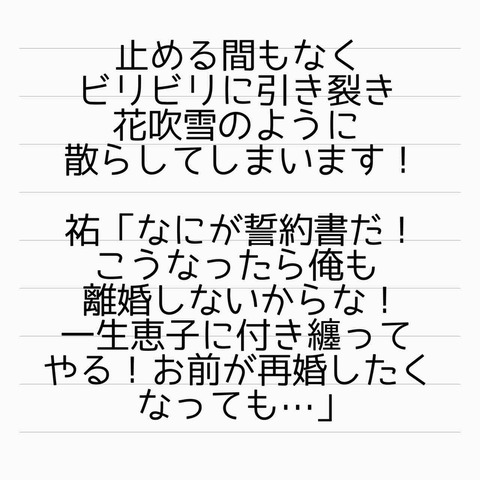 止める間もなく
ビリビリに引き裂き
花吹雪のように
散らしてしまいます！
祐「なにが誓約書だ！
こうなったら俺も
離婚しないからな！
一生恵子に付き纏って
やる！お前が再婚したく
なっても…」